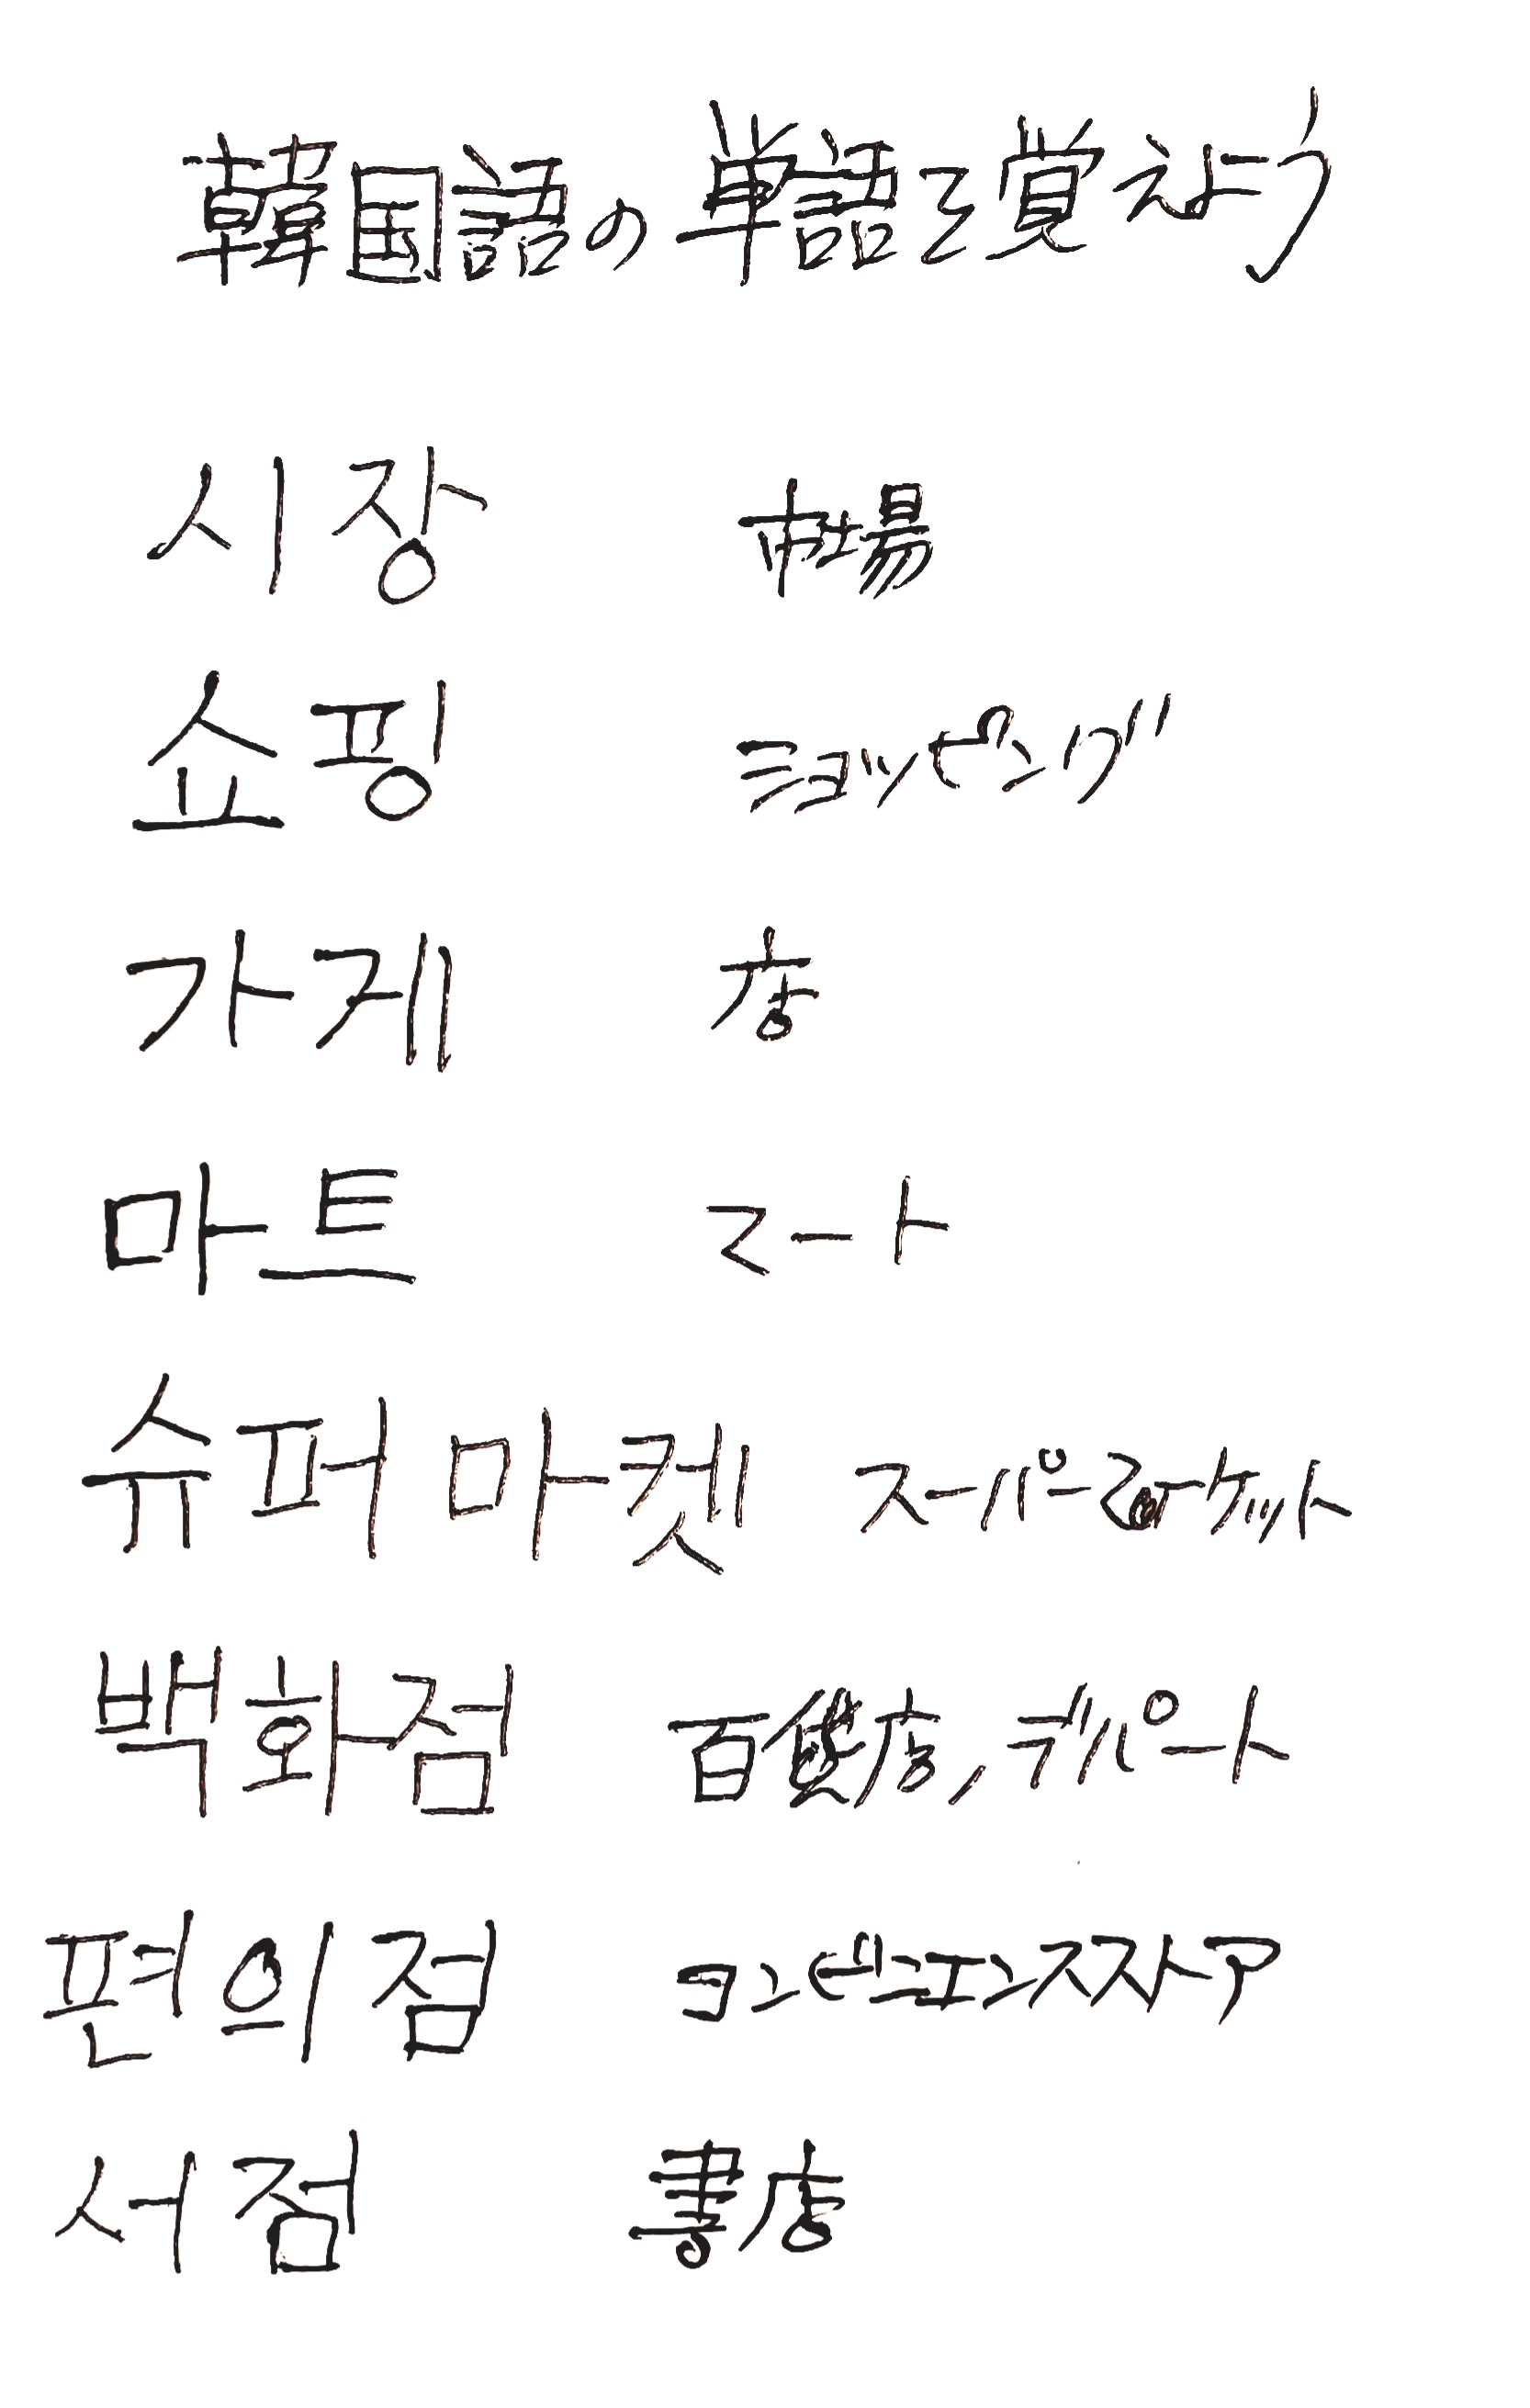 韓国語の単語を覚えよう
시장 市場
쇼핑 ショッピング
가게 店
마트 マート
슈퍼마켓 スーパーマーケット
백화점 百貨店, デパート
편의점 コンビニエンスストア
서점 書店